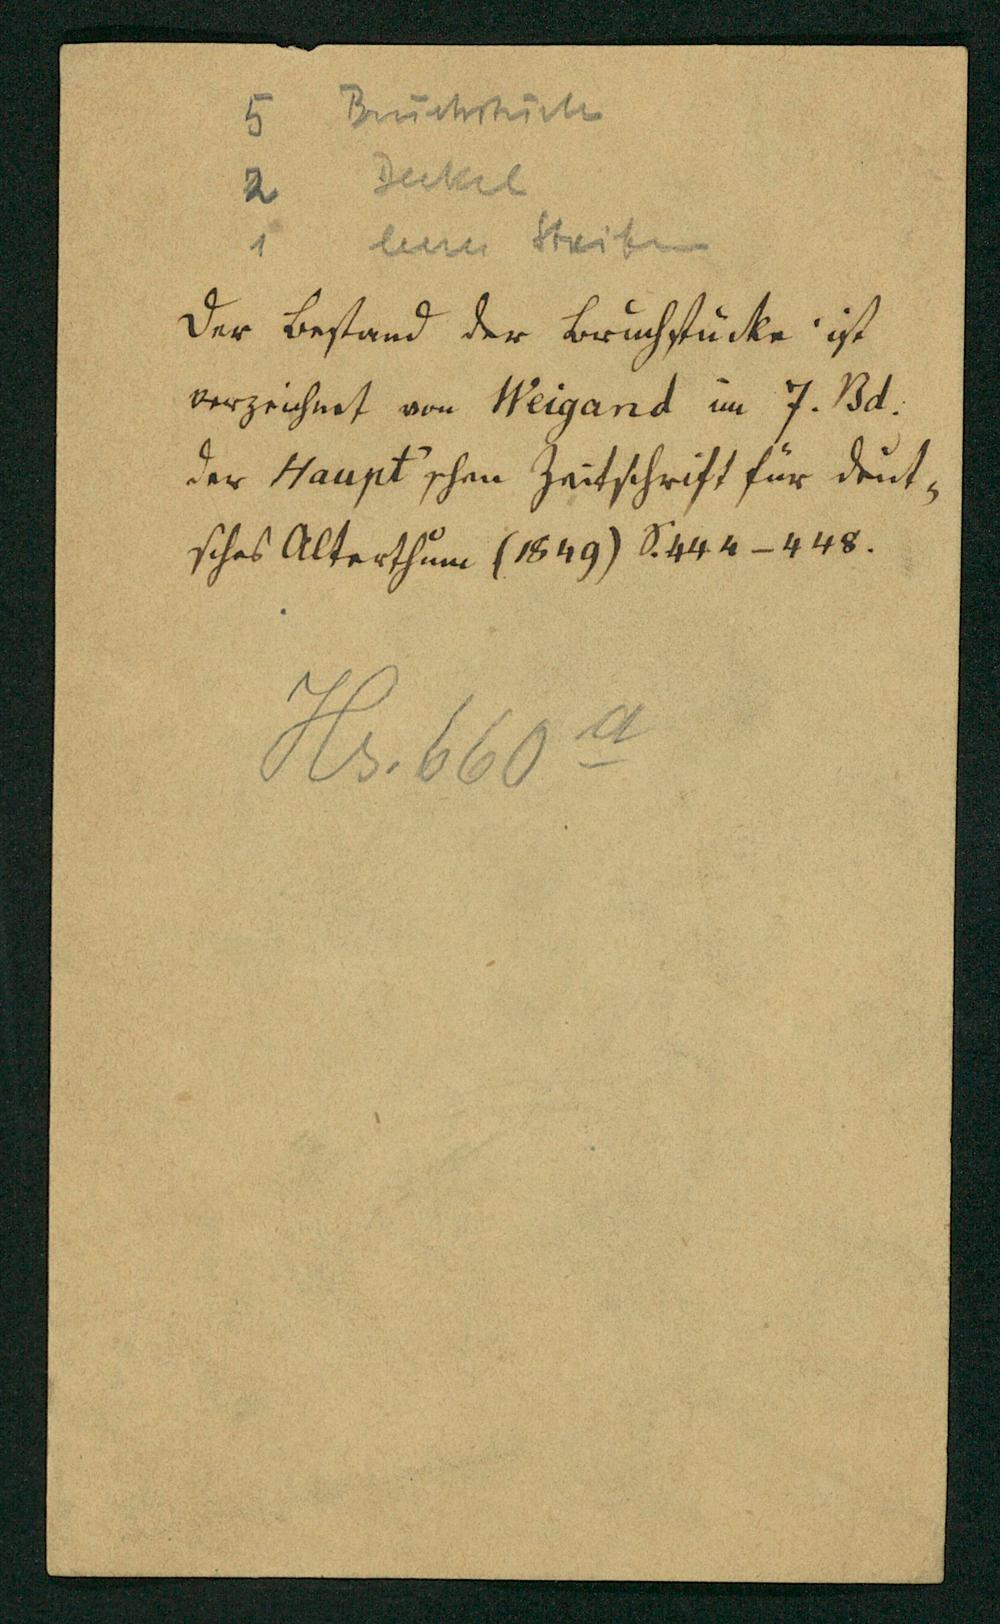 5 Bruchstücke
2 Deckel
1 leerer Streifen
Der Bestand der Bruchstücke ist
verzeichnet von Weigand im 7. Bd.
der Haupt'schen Zeitschrift für deut-
sches Alterthum (1849) S. 444-448.
Hs. 660 a